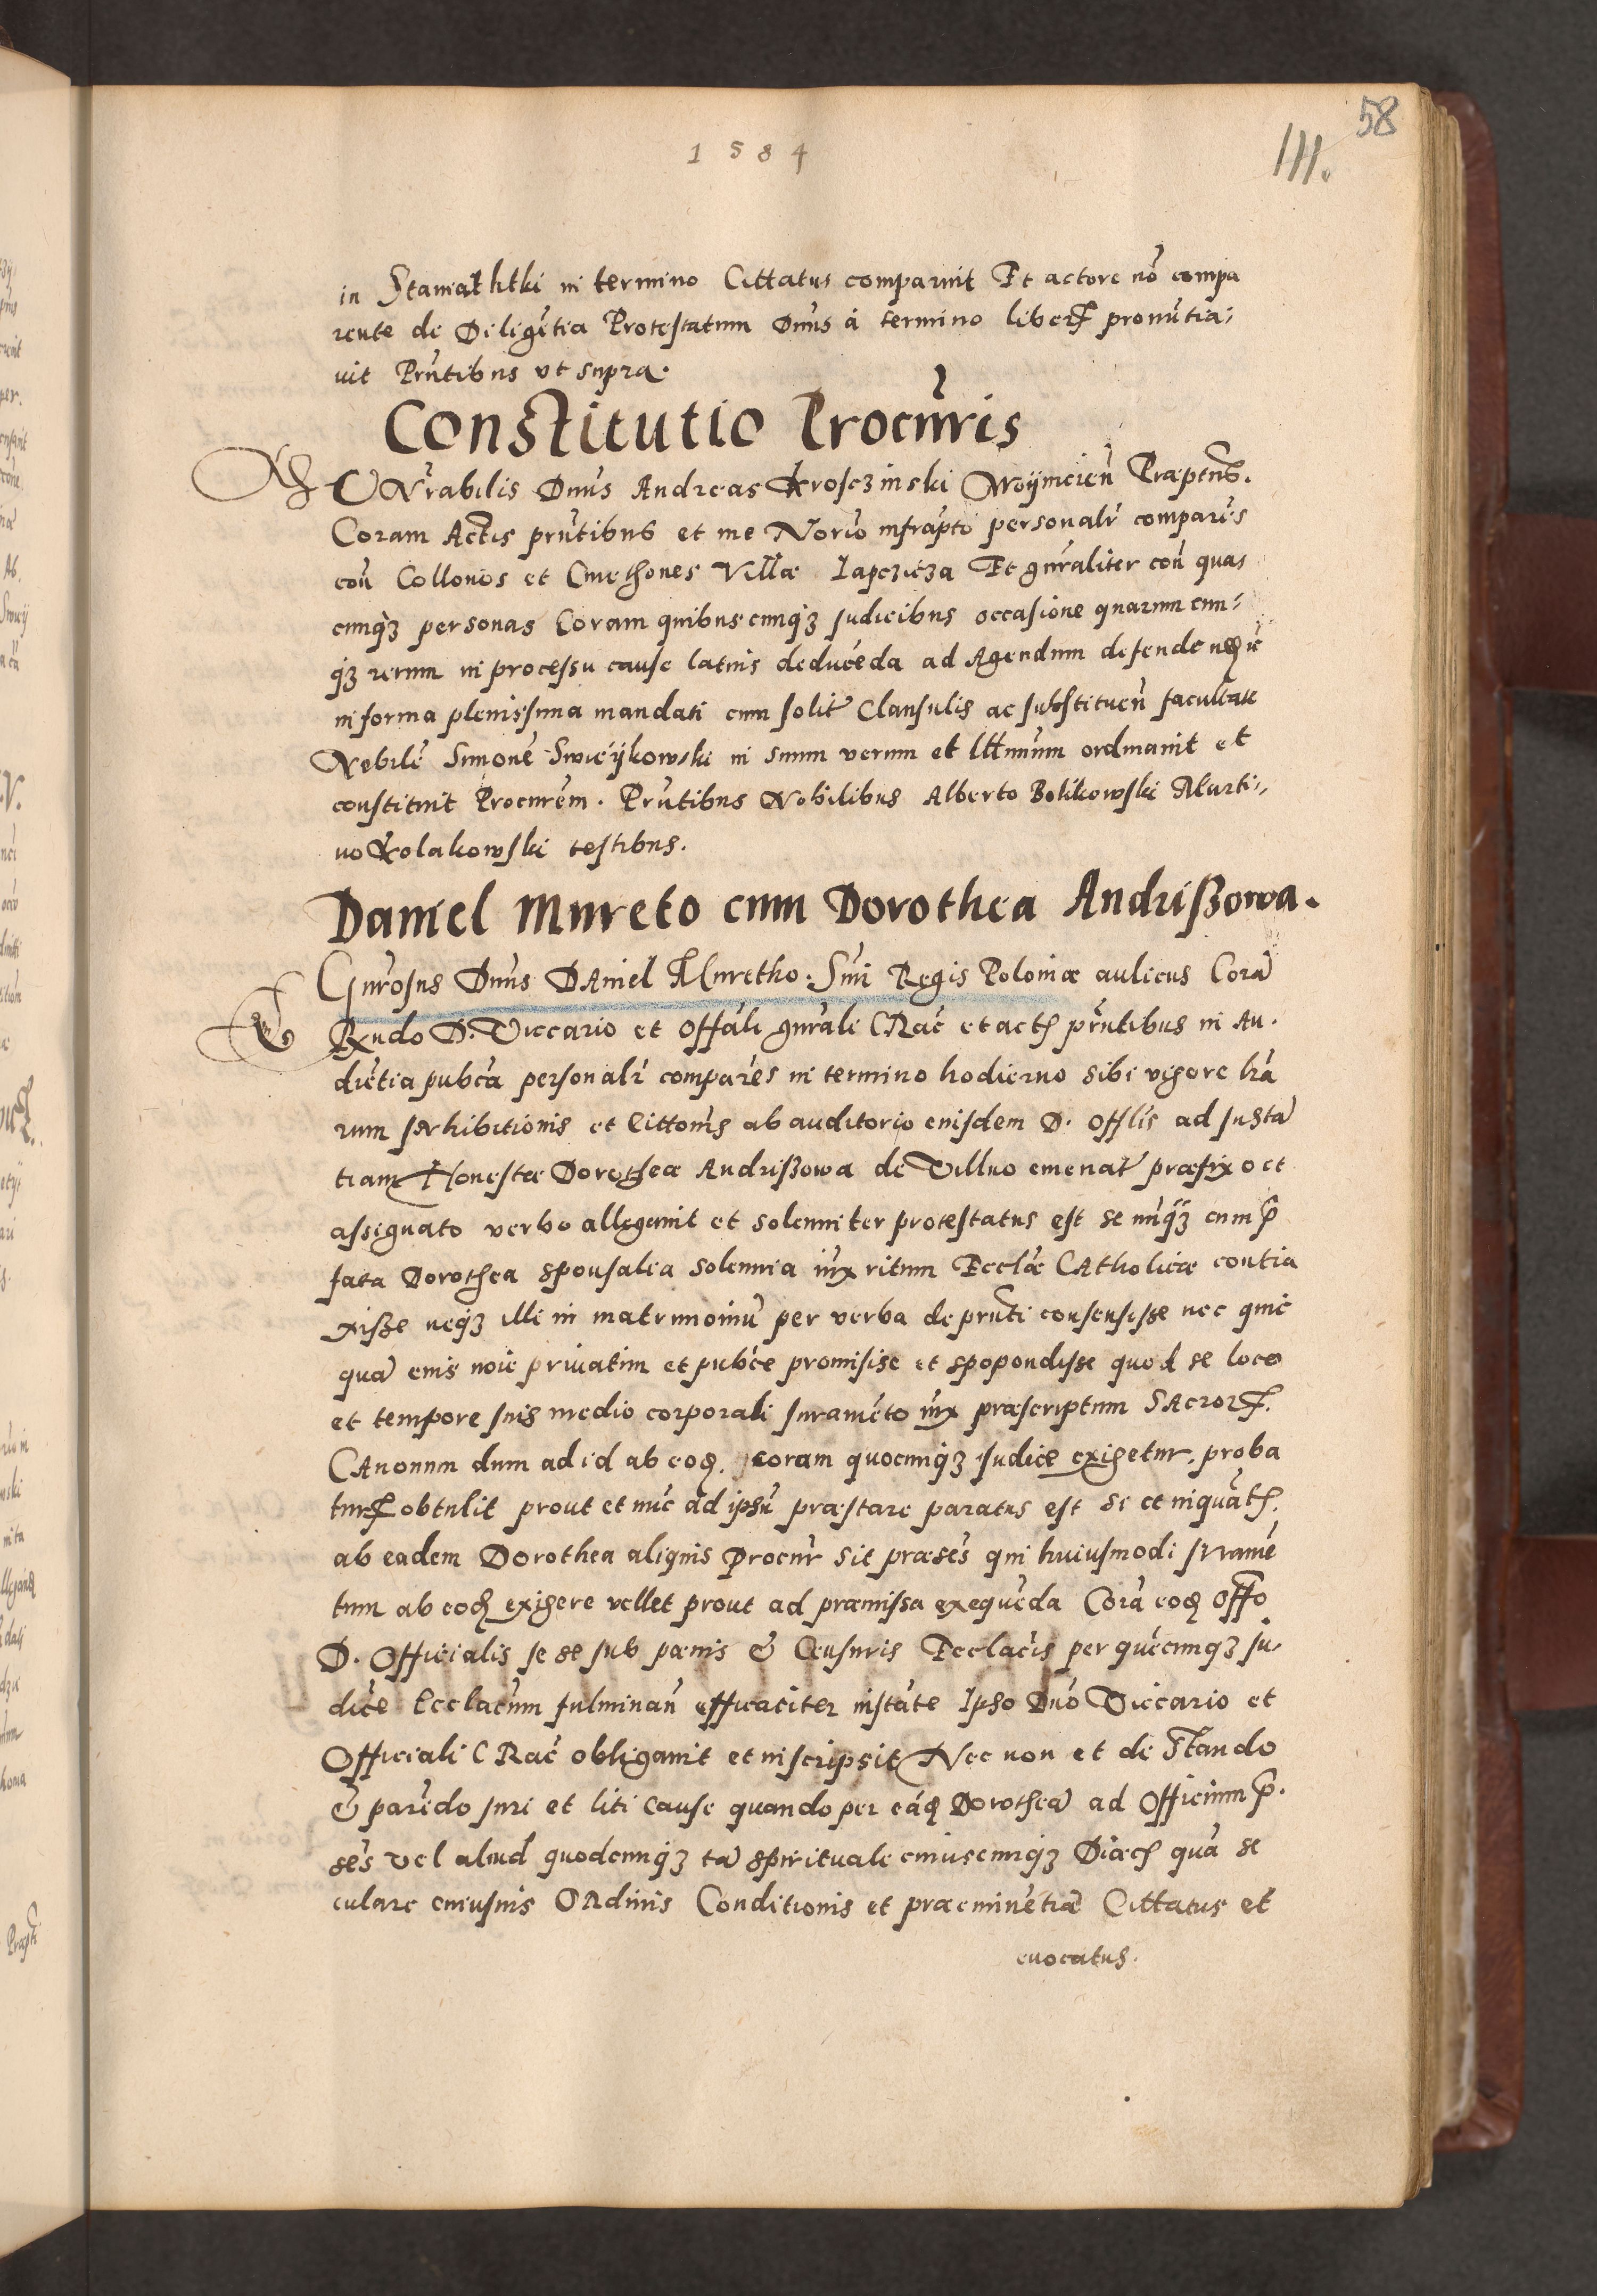 58
111.
1 5 8 4
in Staniathki in termino Cittatus comparuit Et actore nō compa
rente de Diligētia Protestatum Dnus á termino liberū pronūtia-
uit Prntibus vt supra.
Constitutio Procūris
VNrabilis Dnus Andreas Kroseczinski Woijnicieñ Præptus.
Coram Actis prñtibus et me Norio infrapto personalr comparēs
coñ Collonos et Cmethones Villæ Iapczicza Et gnraliter coñ quas
cunq3 personas Coram quibuscunq3 Judicibus occasione quarum cun-
q3 rerum in processu cause latius deducēda ad Agendum
in forma plenissima mandati cum solit Clausulis ac substituen facultate
Nobilē Simonē Swiēijkowski in suum verum et lttimum ordinauit et
constituit Procurem. Prntibus Nobilibus Alberto Bolikowski Marti-
no Kolakowski testibus.
Daniel Mureto cum Dorothea Andrißowa.
Gnrosus Dnus DAniel Muretho. Smi Regis Poloniæ aulicus Corā
Rndo D. Viccario et Offāli gnrali CRac et actis prntibus in Au.
diētia pubca personalr comparēs in termino hodierno sibi vigore lrā
rum Inhibitionis et Cittonis ab auditorio euisdem D. Offlis ad Instā
tiam Honestæ Dorotheæ Andrißowa de Villno emenat præfixo et
assignato verbo allegauit et solenniter protestatus est se nūq3 cum p
fata Dorothea sponsalia solennia iux ritum Ecclæ CAtholicæ contra
xisse neq3 illi in matrimoniū per verba de prnti consensisse nec quic
quā eius noie priuatim et pubce promisise et spopondisse quod se loco
et tempore suis medio corporali Juramēto iux præscriptum SAcrorū.
CAnonum dum ad id ab eod. coram quocunq3 Judice exigetur. proba
turū obtulit prout et nūc ad ipsū præstare paratus est si et inquāt.
ab eadem Dorothea aliquis Procur sit præsēs qui huiusmodi Iramē
tum ab eod exigere vellet prout ad præmissa exequēda Corā eod offo
D. Officialis se se sub pœnis & Censuris Ecclacis per quēcunq3 Ju-
dicē Ecclacum fulminan efficaciter instāte Ipso Dno Viccario et
Officiali CRac obligauit et inscripsit Nec non et de Stando
& parēdo Juri et liti Cause quando per eād Dorotheā ad Officium p.
sēs vel aliud quodcunq3 tā spirituale cuiuscunq3 Diæc quā se
culare cuiusuis ORdinis Conditionis et præeminētiæ Cittatus et
euocatus.